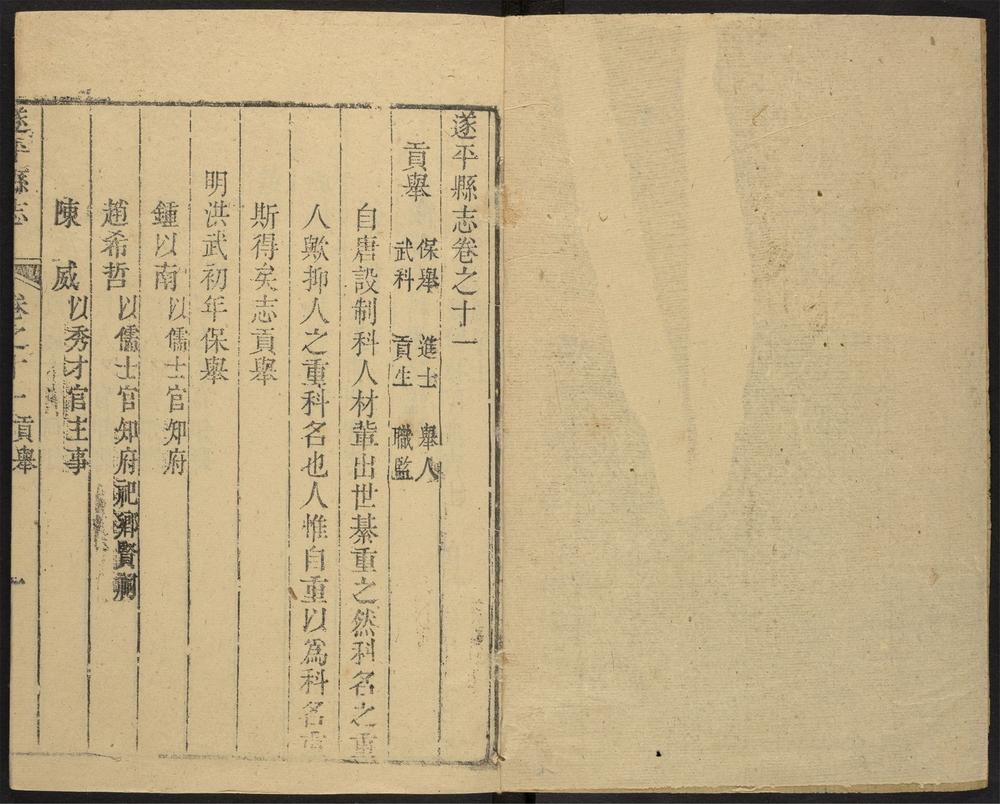 遂平縣志卷之十一
貢舉
保舉 進士 舉人
武科 貢生 職監
自唐設制科人材輩出世綦重之然科名之重
人歟抑人之重科名也人惟自重以爲科名重
斯得矣志貢舉
明洪武初年保舉
鍾以南以儒士官知府
趙希哲以儒士官知府祀鄉賢祠
陳 威以秀才官主事
遂平縣志 卷之十一 貢舉 一